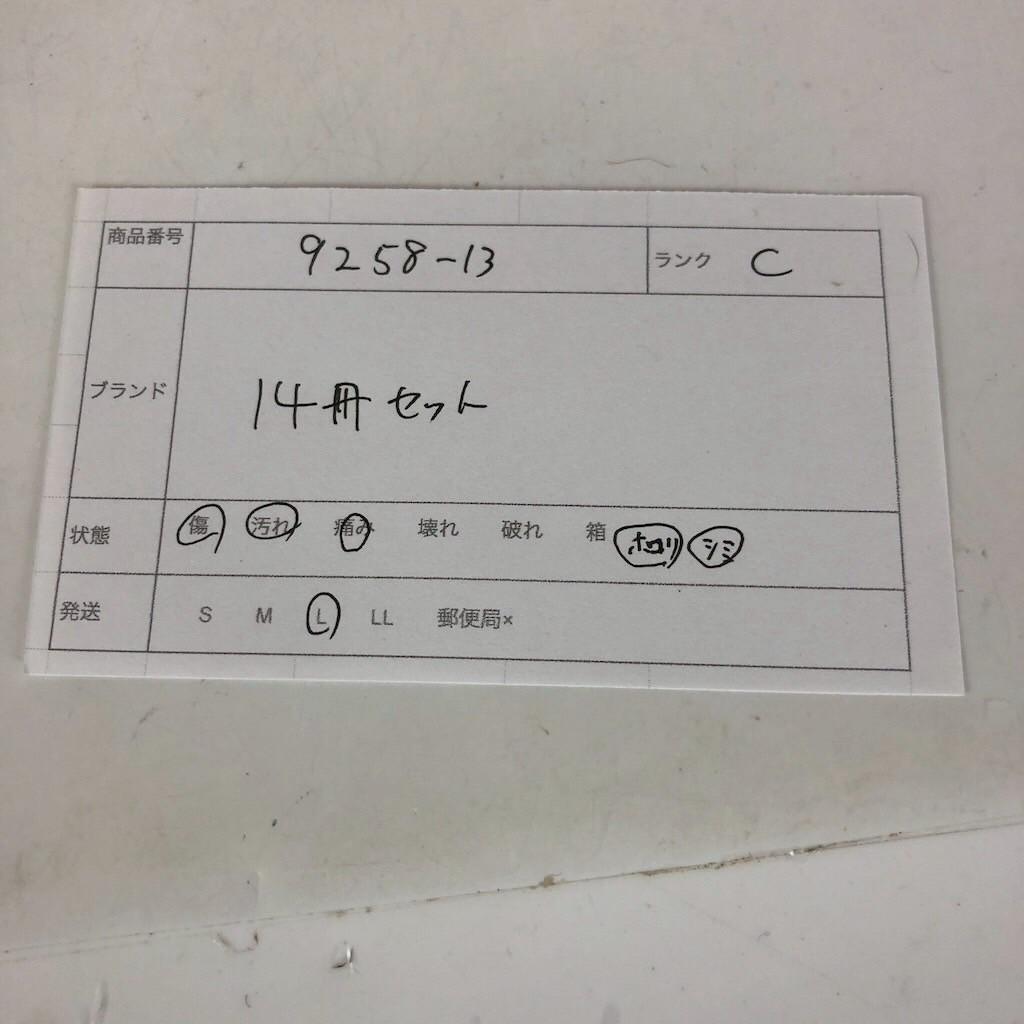 商品番号 9258-13 ランク C
ブランド 14冊セット
状態 傷 汚れ 痛み 壊れ 破れ 箱 ホコリ シミ
発送 S M L LL 郵便局×